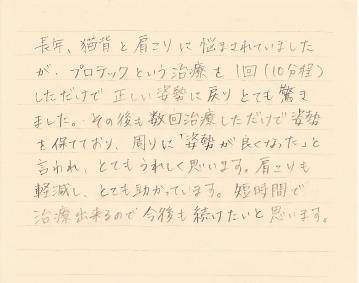 長年、猫背と肩こりに悩まされていました
が、プロテックという治療を1回(10分程)
しただけで正しい姿勢に戻りとても驚き
ました。その後も数回治療しただけで姿勢
を保てており、周りに「姿勢が良くなった」と
言われ、とてもうれしく思います。肩こりも
軽減し、とても助かっています。短時間で
治療出来るので今後も続けたいと思います。